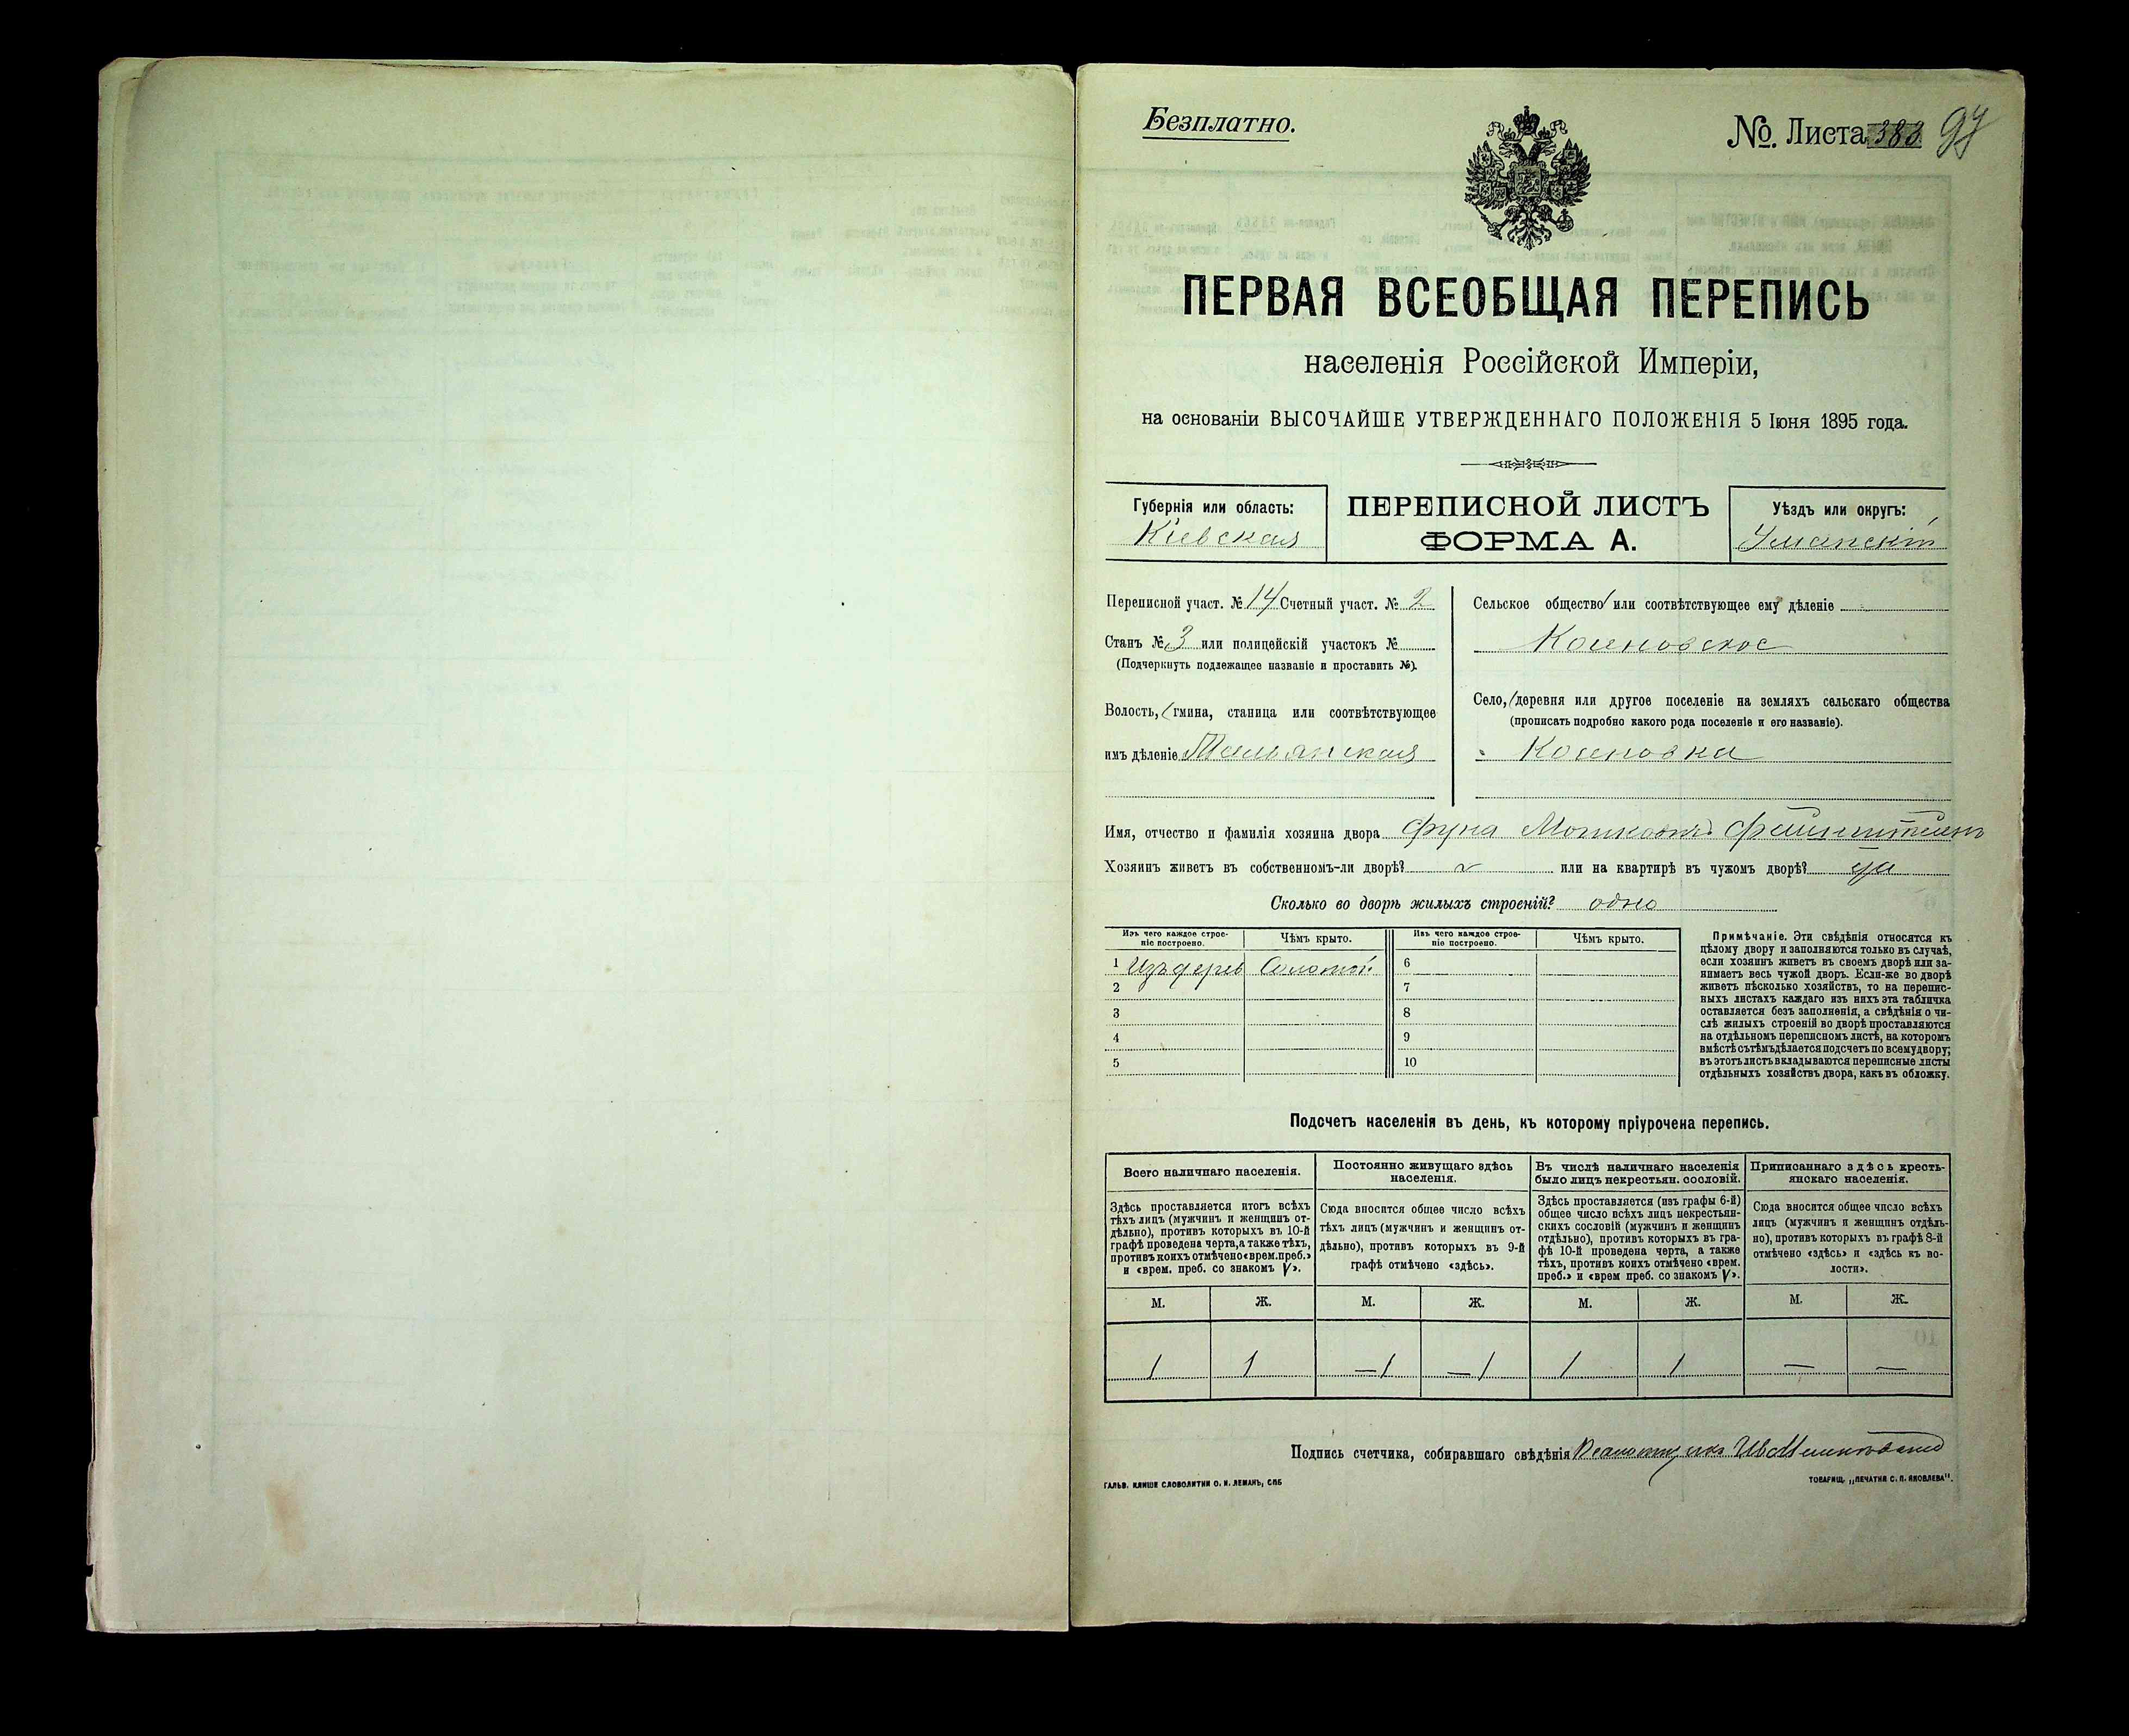 Безплатно.
№. Листа 383 97
ПЕРВАЯ ВСЕОБЩАЯ ПЕРЕПИСЬ
населенія Россійской Имперіи,
на основаніи ВЫСОЧАЙШЕ УТВЕРЖДЕННАГО ПОЛОЖЕНІЯ 5 Іюня 1895 года.
Губернія или область:
Кіевская
ПЕРЕПИСНОЙ ЛИСТЪ
ФОРМА А.
Уѣздъ или округъ:
Уманскій
Переписной участ. № 14 Счетный участ. № 2
Станъ № 3 или полицейскій участокъ №
(Подчеркнуть подлежащее названіе и проставить №).
Волость, гмина, станица или соотвѣтствующее
имъ дѣленіе Тальянская
Сельское общество или соотвѣтствующее ему дѣленіе
Косеновское
Село, деревня или другое поселеніе на земляхъ сельскаго общества
(прописать подробно какого рода поселеніе и его названіе).
Косеновка
Имя, отчество и фамилія хозяина двора Мошковъ Файнштейнъ
Хозяинъ живетъ въ собственномъ-ли дворѣ? или на квартирѣ въ чужомъ дворѣ? да
Сколько во дворѣ жилыхъ строеній? одно
Изъ чего каждое строеніе построено. Чѣмъ крыто. Изъ чего каждое строеніе построено. Чѣмъ крыто.
1 Изъ дерев Соломой 6
2 7
3 8
4 9
5 10
Примѣчаніе. Эти свѣдѣнія относятся къ
цѣлому двору и заполняются только въ случаѣ,
если хозяинъ живетъ въ своемъ дворѣ или за-
нимаетъ весь чужой дворъ. Если-же во дворѣ
живетъ нѣсколько хозяйствъ, то на перепис-
ныхъ листахъ каждаго изъ нихъ эта табличка
оставляется безъ заполненія, а свѣдѣнія о чи-
слѣ жилыхъ строеній во дворѣ проставляются
на отдѣльномъ переписномъ листѣ, на которомъ
вмѣстѣ съ тѣмъ дѣлается подсчетъ по всему двору;
въ этотъ листъ вкладываются переписные листы
отдѣльныхъ хозяйствъ двора, какъ въ обложку.
Подсчетъ населенія въ день, къ которому пріурочена перепись.
Всего наличнаго населенія.
Здѣсь проставляется итогъ всѣхъ
тѣхъ лицъ (мужчинъ и женщинъ от-
дѣльно), противъ которыхъ въ 10-й
графѣ проведена черта, а также тѣхъ,
противъ коихъ отмѣчено «врем. преб.»
и «врем. преб. со знакомъ V».
Постоянно живущаго здѣсь
населенія.
Сюда вносится общее число всѣхъ
тѣхъ лицъ (мужчинъ и женщинъ от-
дѣльно), противъ которыхъ въ 9-й
графѣ отмѣчено «здѣсь».
Въ числѣ наличнаго населенія
было лицъ некрестьян. сословій.
Здѣсь проставляется (изъ графы 6-й)
общее число всѣхъ лицъ некрестьян-
скихъ сословій (мужчинъ и женщинъ
отдѣльно), противъ которыхъ въ гра-
фѣ 10-й проведена черта, а также
тѣхъ, противъ коихъ отмѣчено «врем.
преб.» и «врем преб. со знакомъ V».
Приписаннаго здѣсь кресть-
янскаго населенія.
Сюда вносится общее число всѣхъ
лицъ (мужчинъ и женщинъ отдѣль-
но), противъ которыхъ въ графѣ 8-й
отмѣчено «здѣсь» и «здѣсь въ во-
лости».
М. Ж. М. Ж. М. Ж. М. Ж.
1 1 —1 —1 1 1 — —
Подпись счетчика, собиравшаго свѣдѣнія
ГАЛЬВ. КЛИШЕ СЛОВОЛИТНИ О. И. ЛЕМАНЪ, СПБ
ТОВАРИЩ. „ПЕЧАТНЯ С. П. ЯКОВЛЕВА".